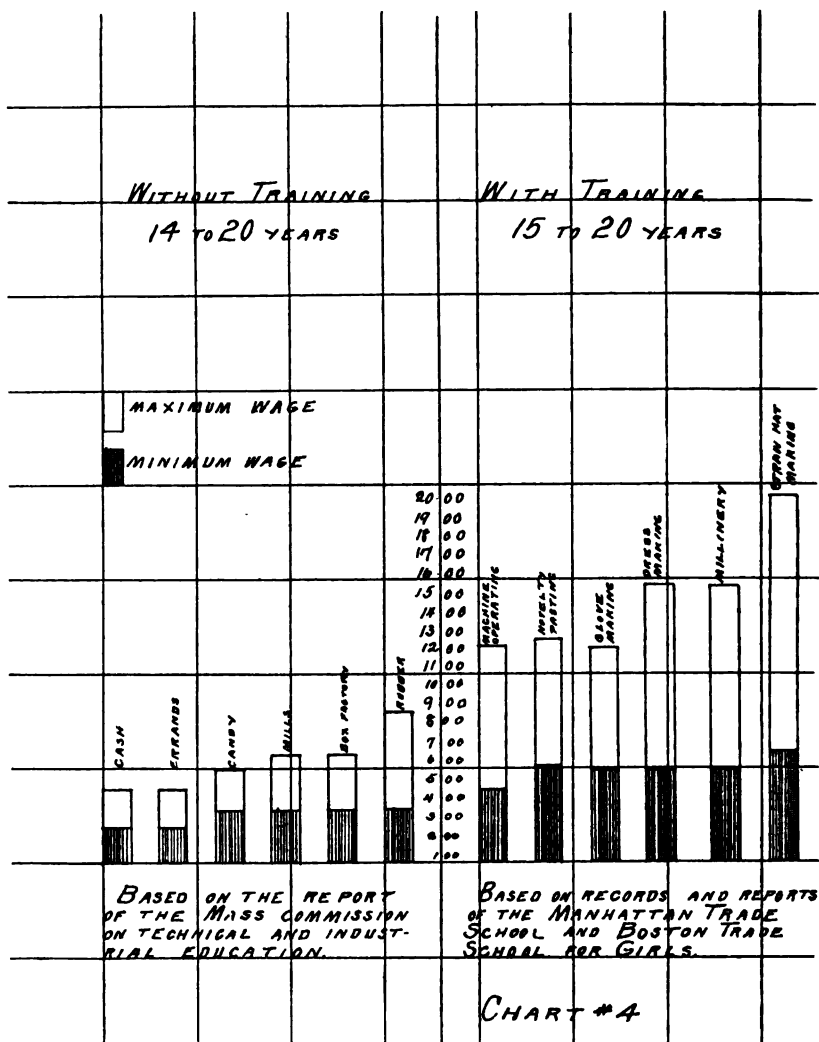 WITHOUT TRAINING
14 TO 20 YEARS
WITH TRAINING
15 TO 20 YEARS
MAXIMUM WAGE
MINIMUM WAGE
20.00
19 00
18 00
17 00
16.00
15 00
14 00
13 00
12 00
11 00
10 00
9 00
8 00
7 00
6 00
5 00
4 00
3 00
2 00
1 00
CASH
ERRANDS
CANDY
MILLS
BOX FACTORY
RUBBER
MACHINE
OPERATING
NOVELTY
PASTING
GLOVE
MAKING
DRESS
MAKING
MILLINERY
STRAW HAT
MAKING
BASED ON THE REPORT
OF THE MASS COMMISSION
ON TECHNICAL AND INDUST-
RIAL EDUCATION.
BASED ON RECORDS AND REPORTS
OF THE MANHATTAN TRADE
SCHOOL AND BOSTON TRADE
SCHOOL FOR GIRLS.
CHART #4